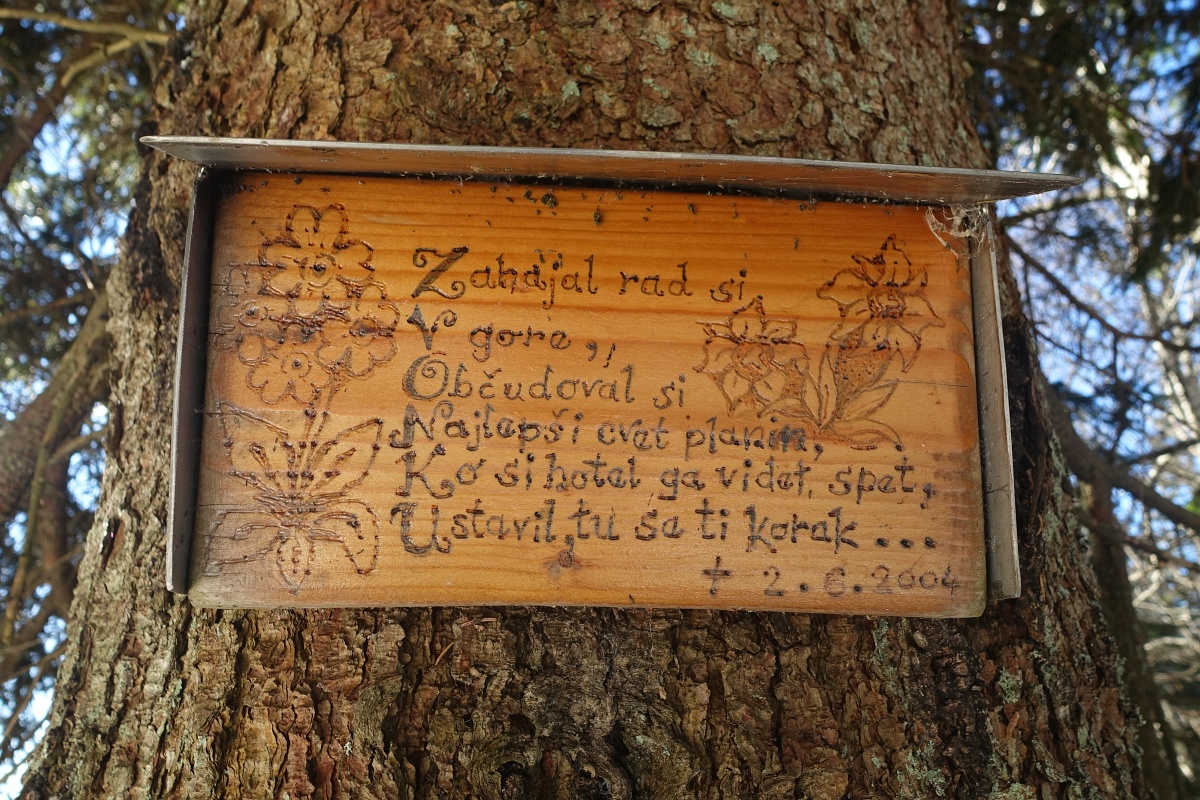 Zahajal rad si
V gore,,
Občudoval si
Najlepši cvet planin,
Ko si hotel ga videt, spet,
Ustavil, tu se ti korak...
† 2.6.2004